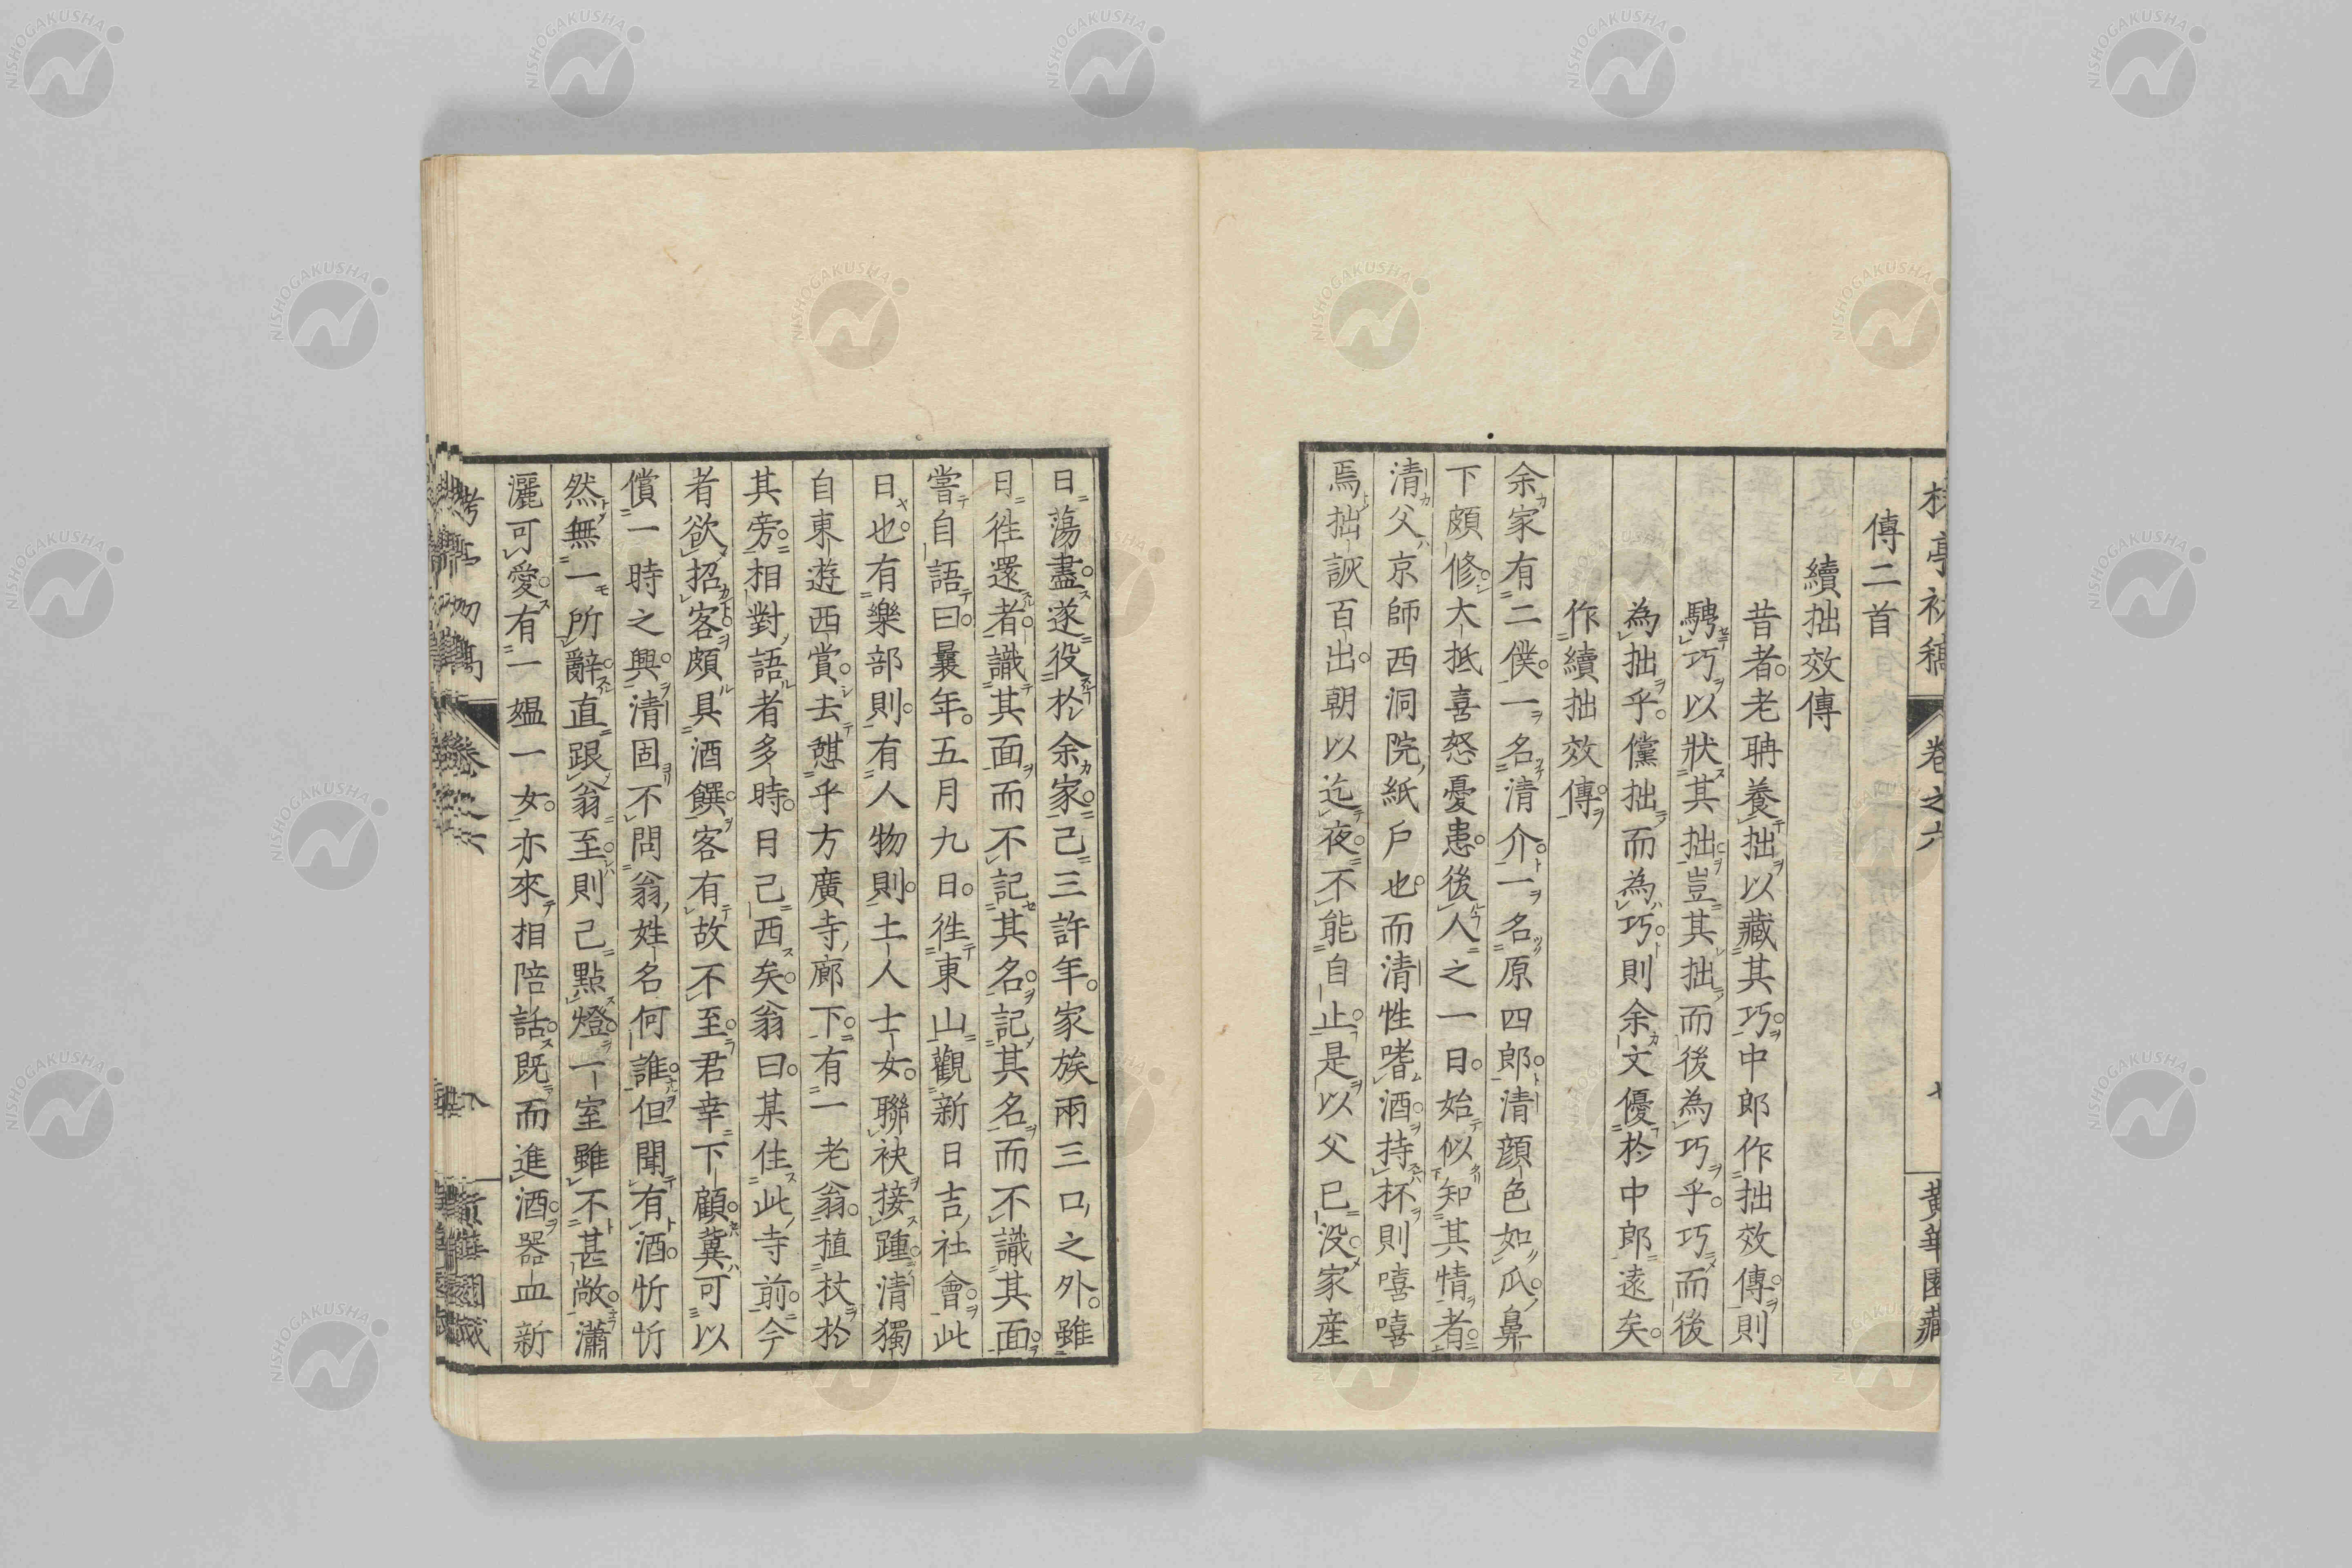 卷之六
黄華園藏
傳二首
續拙效傳
昔者老聃養拙以藏其巧中郎作拙效傳則
騁巧以狀其拙豈其拙而後為巧乎巧而後
為拙乎儻拙而為巧則余文優於中郎遠矣
作續拙效傳
余家有二僕一名清介一名原四郎清顔色如瓜鼻
下頗修大抵喜怒憂患後人之一日始似知其情者
清父京師西洞院紙戶也而清性嗜酒持杯則嘻嘻
焉拙詼百出朝以迄夜不能自止是以父已没家産
日蕩盡遂役於余家已三許年家族兩三口之外雖
日徃還者識其面而不記其名記其名而不識其面
嘗自語曰曩年五月九日徃東山觀新日吉社會此
日也有樂部則有人物則土人士女聯袂接踵清獨
自東遊西賞去憇乎方廣寺廊下有一老翁植杖於
其旁相對語者多時日已西矣翁曰某住此寺前今
者欲招客頗具酒饌客有故不至君幸下顧冀可以
償一時之興清固不問翁姓名何誰但聞有酒忻忻
然無一所辭直跟翁至則已點燈一室雖不甚敞瀟
灑可愛有一媼一女亦來相陪話既而進酒器皿新